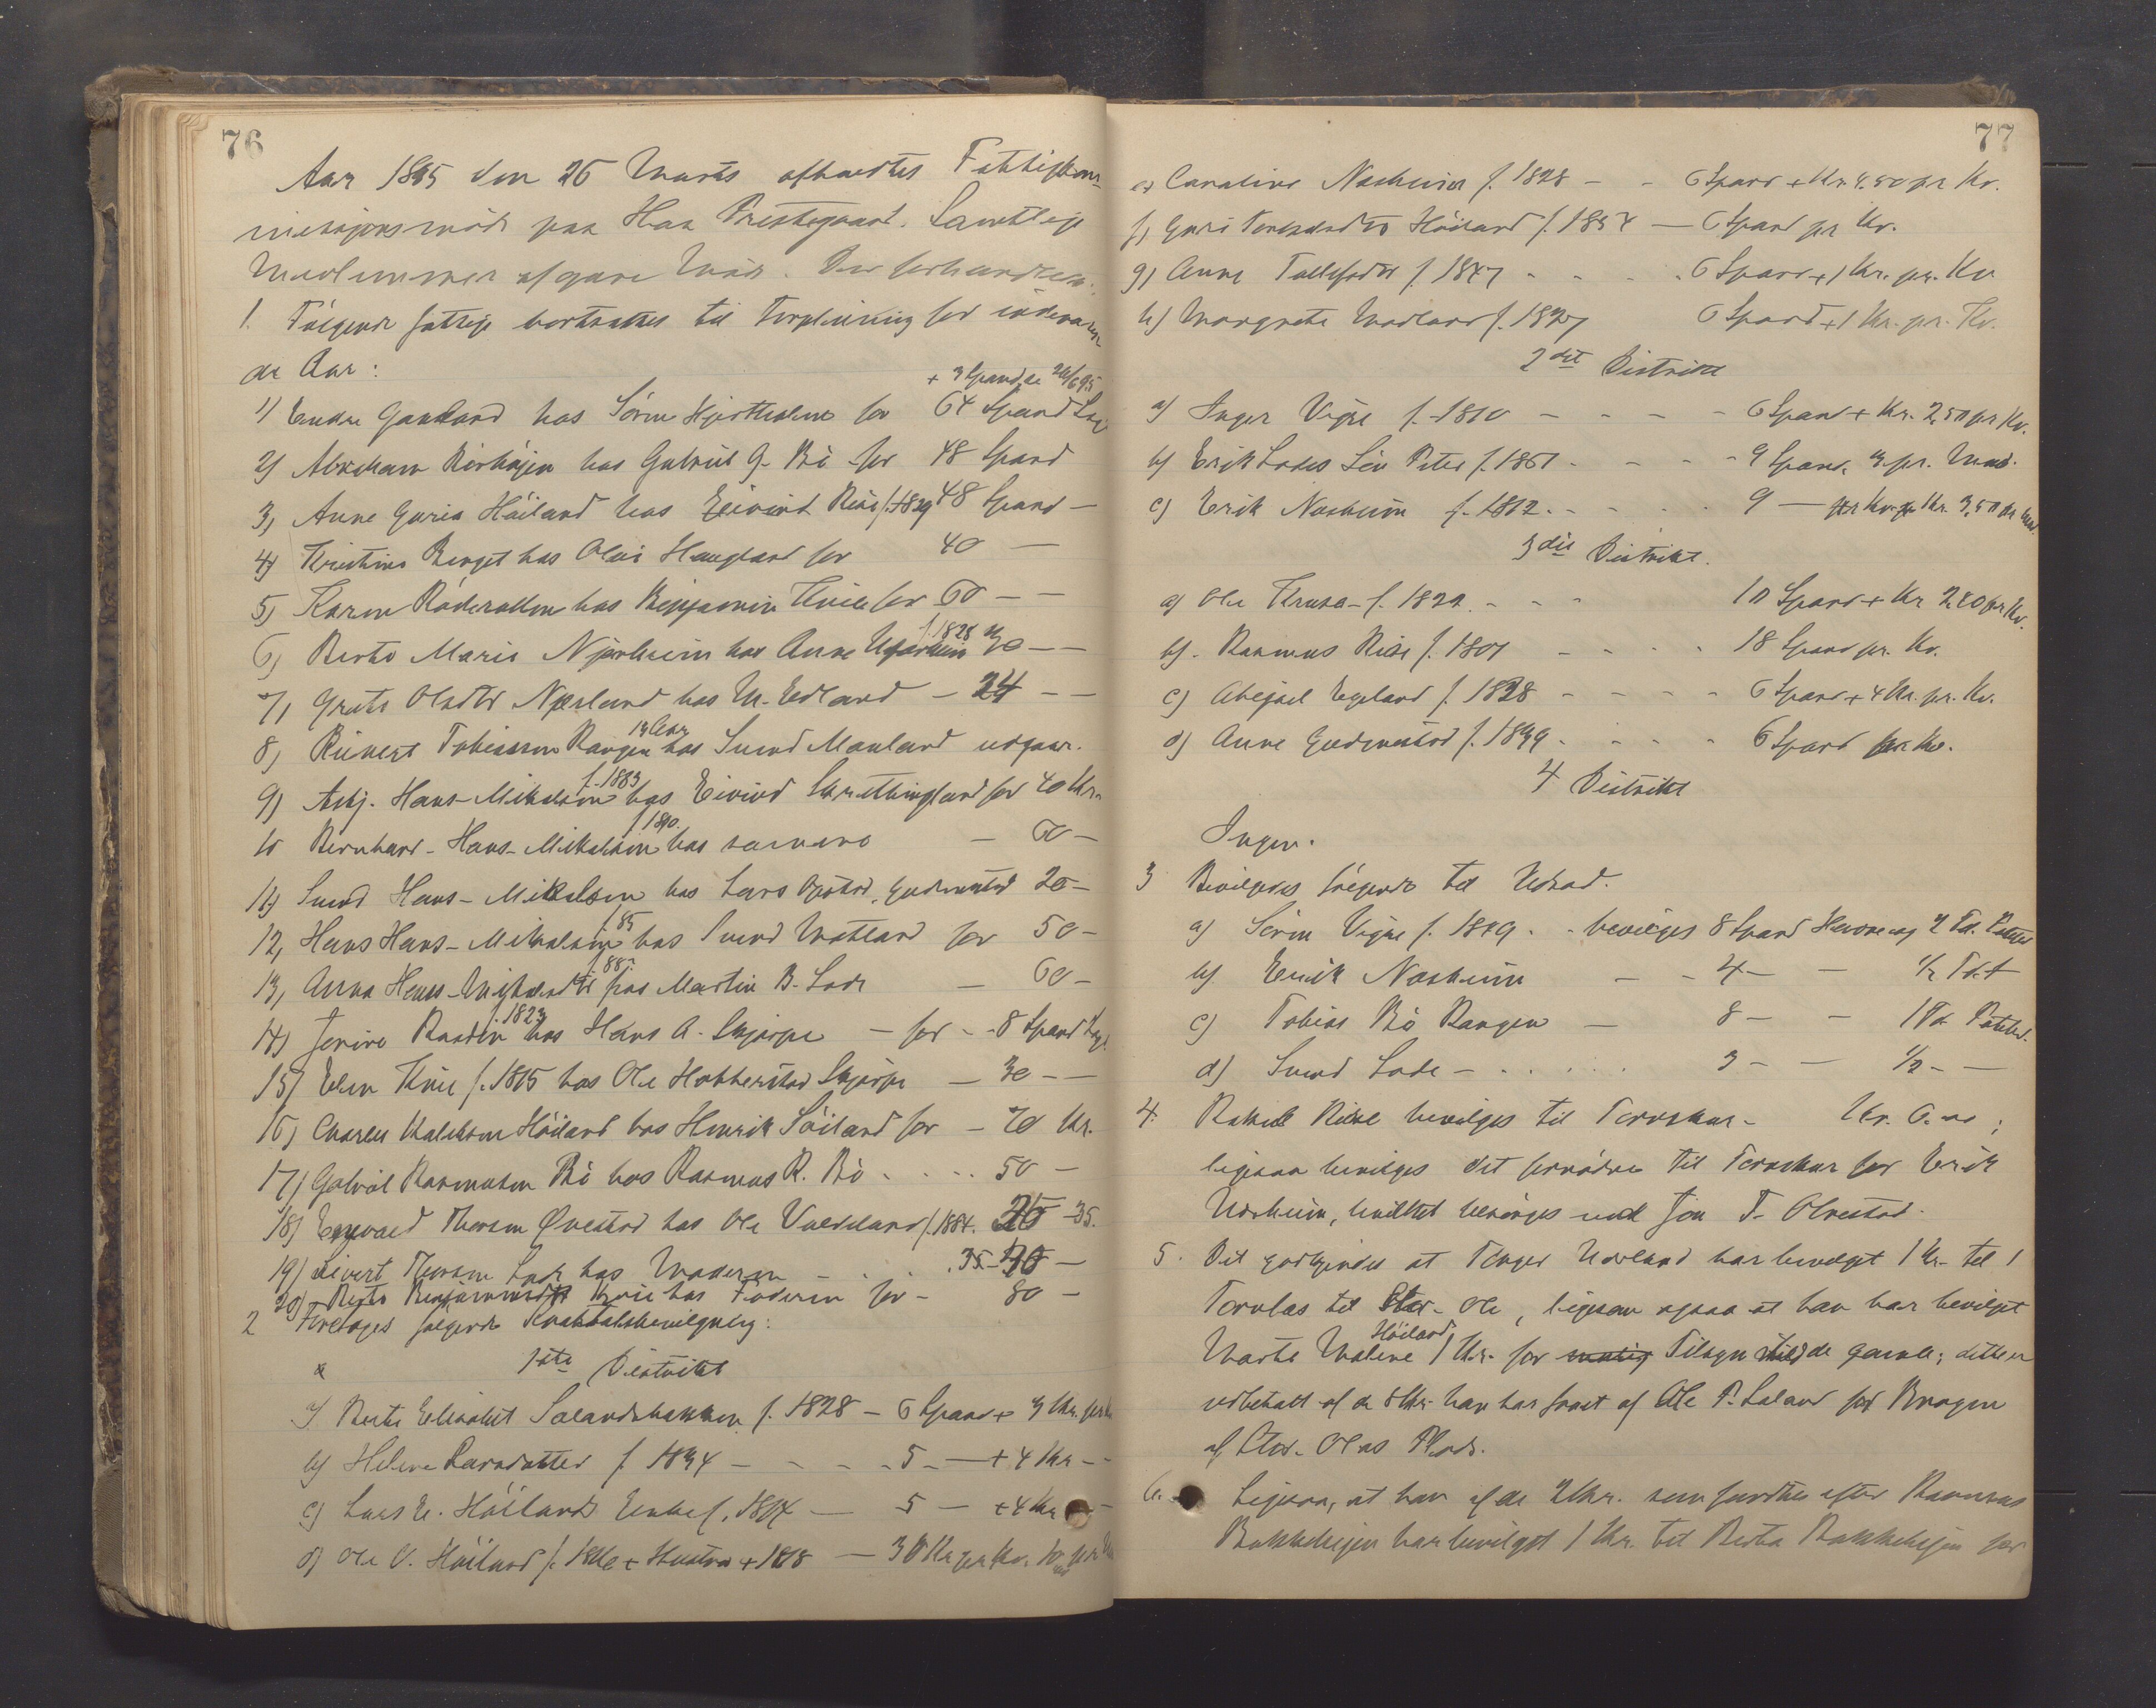 76
Aar 1895 den 26 Marts afholdtes Fattigkom-
misjonsmøde paa Haa Prestegaard. Samtlige
Medlemmer afgave Møde. Der forhandledes:
1. Følgende fattige bortsattes til Forpleining for indeværen
de Aar:
+ 3 Spand se 26/6 95
1) Endre Gaukard hos Søren Hjertholm for 64 Spand
2) Abraham Birkhøien hos Gabriel G. Bø for 48 Spand
3) Anne Guria Høiland hos Eivind Riise f. 1829 48 Spand —
4) Kristine Berget hos Olai Haugland for 40 —
5) Karen hos Benjamin Kvie for 60 — —
6) Berte Marie Njærheim hos Anne f. 1828 30 — —
7) Grete Olsdtr Nærland hos M. Edland — 24 — —
8) Tobiassen Rangen 13 Aar hos Svend Mauland udgaar.
9) Asbj. Hans-Mikalsen f. 1883 hos Eivind Skretthingland for 40 Kr.
10 Bernhard Hans-Mikalsen f 1890 hos samme — 60 —
11) Svend Hans-Mikalsen hos Lars 20 —
12) Hans Hans-Mikalsen f. 85 hos Svend Motland for 50 —
13) Anna Hans-Mikalsdtr f 88 hos Martin B. Lode — 60 —
14) Jenine f. 1823 hos Hans A. Skjærpe — for - - 8 Spand
15) Elen Kvie f. 1815 hos Ole Hobberstad Skjærpe — 30 — —
16) Charles Høiland hos Henrik Søiland for — 70 Kr.
17) Gabriel Rasmussen Bø hos Rasmus R. Bø - - - - 50 —
18) Thorsen Øvestad hos Ole f. 1884. 35.
19) Sivert Thorsen Lode hos Moderen — . . . 35 —
20) Berte Kvie hos Faderen for — 80 —
2 Foretoges følgende Kvartalsbevilgning:
1ste Distrikt
a) Berte Elisabet f. 1828 — 6 Spand + 3 Kr. pr
b) Helene Larsdatter f. 1834 — - - - 5 — + 4 Kr — -
c) Lars E. Høilands Enke f. 1814 — 5 — + 4 Kr
d) Ole V. Høiland + Hustru + 1818 — 30 Kr pr Kv.
77
e) Caroline Nasheim f. 1828 — - 6 Spand + Kr. 4.50 pr Kv.
f) Guri Høiland f. 1834 — 6 Spand pr Kv.
g) Anne Tollefsdtr f. 1847 - - - - 6 Spand + 1 Kr. pr. Kv
h) Margrete Madland f. 1827 6 Spand + 1 Kr. pr. Kv.
2det Distrikt
a) Inger Vigre f. 1810 — - - - 6 Spand + Kr. 2,50 pr Kv.
b) Erik Lodes Søn Peter f. 1861 - - - - 9 Spand, 3 pr. Mnd.
c) Erik Nasheim f. 1812 - - - - 9 — Kr. 3,50
3die Distrikt.
a) Ole Kruse - f. 1822 - - - 10 Spand + Kr 2,80 pr Kv.
b) Rasmus Riise f. 1807 - - - - 18 Spand pr. Kv.
c) Abigael Egeland f. 1828 - - - - 6 Spand + 4 Kr. pr. Kv.
d) Anne Gudmestad f. 1839 - - - - 6 Spand pr Kv.
4 Distrikt
Ingen.
3 Bevilgedes følgende til Udsæd.
a) Søren Vigre f. 1849 - - bevilges 8 Spand Havre og 2 Td. Poteter
b) Erik Nasheim — - 4 — — 1/2 Td. +
c) Tobias Bø Rangen — 8 — — 1 Td. Poteter.
d) Svend Lode — . . . . . 3 — — 1/2 — —
4. Rakel Riise bevilges til Torvskur — Kr. 6.00;
ligesaa bevilges det fornødne til Torvskur for Erik
Nasheim, hvilket besørges ved Jon T. Obrestad.
5. Det godkjendes at Tønges Udland har bevilget 1 Kr. til 1
Torvlas til Stor-Ole, ligesom ogsaa at han har bevilget
Marte Malene Høiland 1 Kr. for Tilsyn med de gamle; dette er
udbetalt af de 8 Kr. han har faaet af Ole P. Laland for Brugen
af Stor-Olas Plads.
6. Ligesaa, at han af de 2 Kr. som fandtes efter Rasmus
Bakkehøien har bevilget 1 Kr. til Berta Bakkehøien for